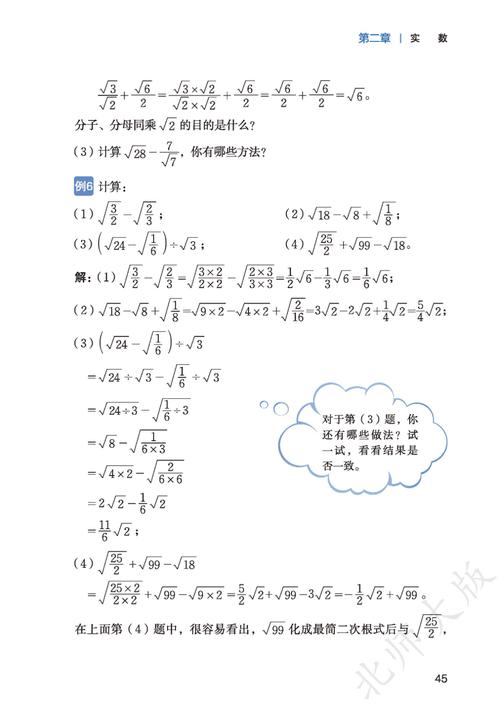 第二章 | 实 数
√3/√2+√6/2=√3×√2/√2×√2+√6/2=√6/2+√6/2=√6。
分子、分母同乘√2的目的是什么?
(3)计算√28-7/√7,你有哪些方法?
例6 计算:
(1)√(3/2)-√(2/3); (2)√18-√8+√(1/8);
(3)(√24-√(1/6))÷√3; (4)√(25/2)+√99-√18。
解:(1)√(3/2)-√(2/3)=√(3×2/2×2)-√(2×3/3×3)=1/2√6-1/3√6=1/6√6;
(2)√18-√8+√(1/8)=√9×2-√4×2+√(2/16)=3√2-2√2+1/4√2=5/4√2;
(3)(√24-√(1/6))÷√3
=√24÷√3-√(1/6)÷√3
=√24÷3-√(1/6÷3)
=√8-√(1/6×3)
=√4×2-√(2/6×6)
=2√2-1/6√2
=11/6√2;
对于第(3)题,你
还有哪些做法?试
一试,看看结果是
否一致。
(4)√(25/2)+√99-√18
=√(25×2/2×2)+√99-√9×2=5/2√2+√99-3√2=-1/2√2+√99。
在上面第(4)题中,很容易看出,√99化成最简二次根式后与√(25/2),
北师大版
45